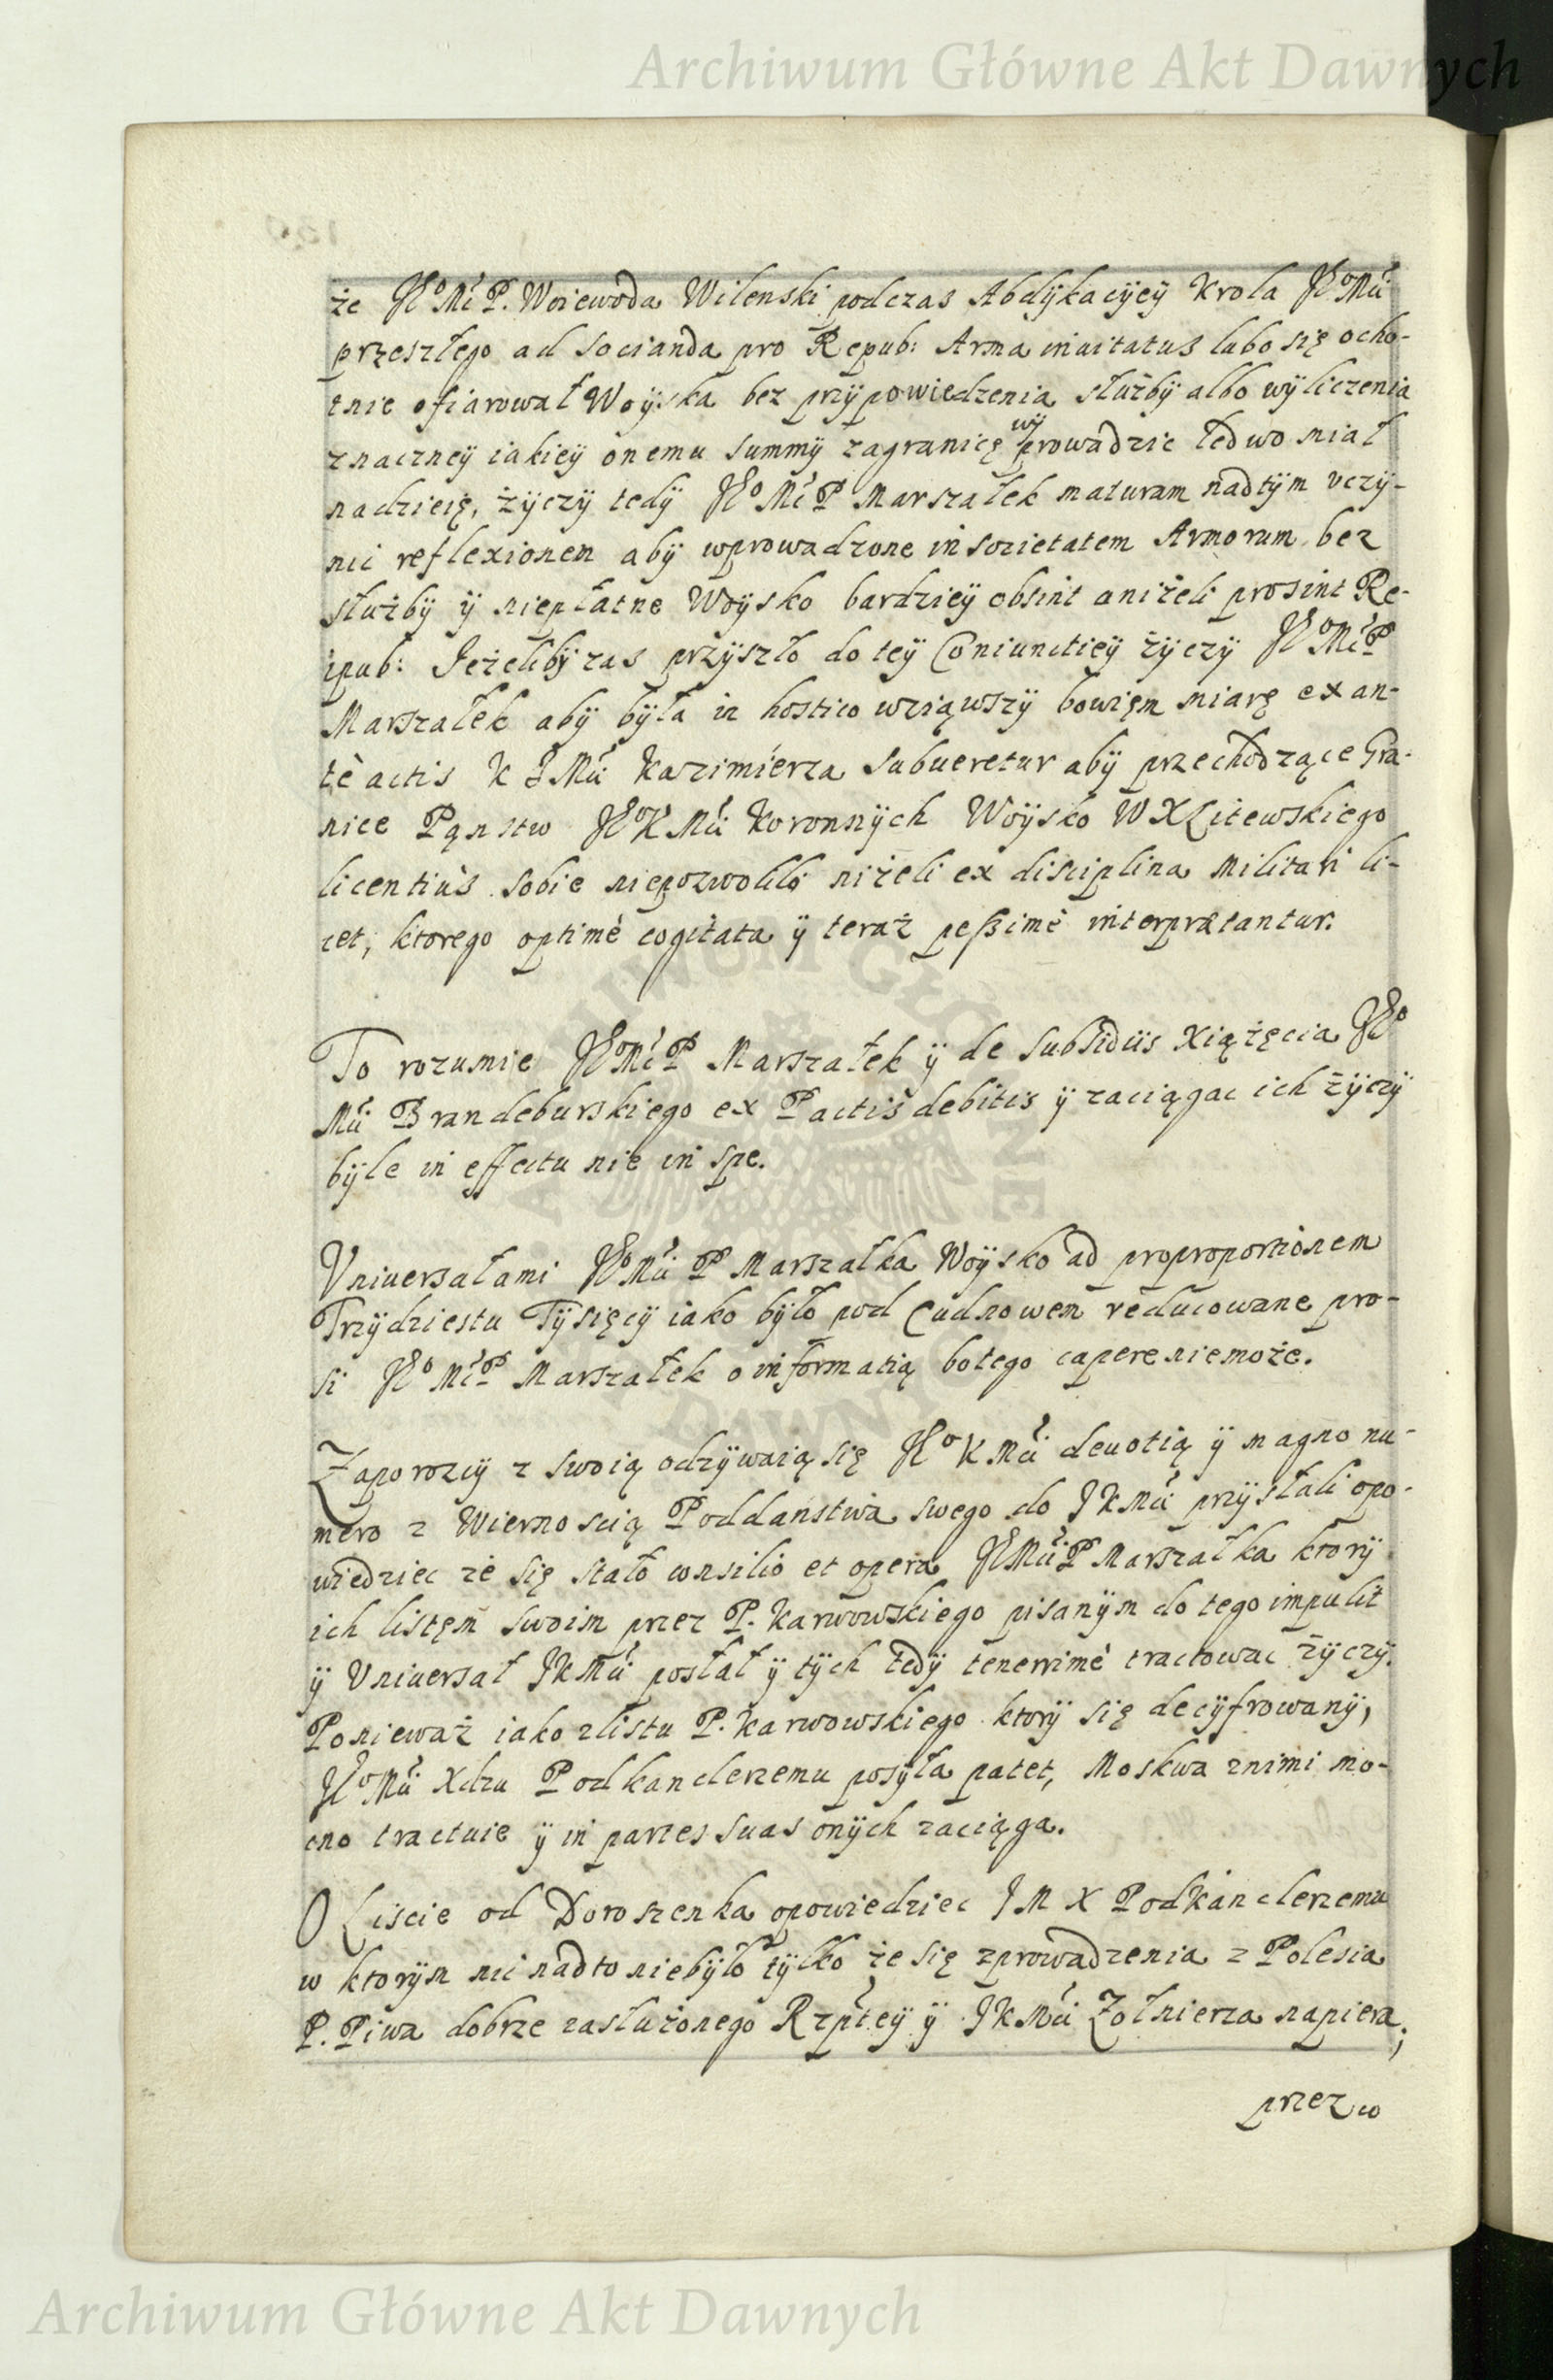 Archiwum Główne Akt Dawnych
że JEoMć P. Woiewoda Wilenski podczas Abdÿkacÿeÿ Krola JEoMći
przeszłego ad socianda pro Repub: Arma inuitatus lubo się ocho-
tnie ofiarował Woÿska bez przÿpowiedzenia służbÿ albo wÿliczenia
znaczneÿ iakieÿ onemu summÿ zagranicę wÿprowadzic ledwo miał
nadzieię, żÿczÿ tedÿ JEoMćP Marszałek maturam nadtÿm vczÿ-
nić reflexionem abÿ wprowadzone in societatem Armorum bez
służbÿ ÿ niepłatne Woÿsko bardzieÿ obsint aniżeli prosint Re-
ipub: Jeżelibÿ zas przÿszło do teÿ Coniunctieÿ żÿczÿ JEoMćP
Marszałek abÿ bÿła in hostico wziąwszÿ bowięm miarę ex an-
tè actis K JMći Kazimierza subueretur abÿ przechodzące Gra-
nice Pąnstw JEoKMći Koronnÿch Woÿsko WXLitewskiego
licentiùs sobie niepozwoliło niżeli ex disciplina militari li-
cet, ktorego optimè cogitata ÿ teraż peßimè interprætantur.
To rozumie JEoMćP Marszałek ÿ de subsidiis Xiążęcia JEo
Mći Brandeburskiego ex Pactis debitis ÿ zaciągac ich żÿczÿ
bÿle in effectu nie in spe.
Vniuersałami JEoMći P Marszałka Woÿsko ad proproportionem
Trzÿdziestu Tÿsięcÿ iako bÿło pod Cudnowem reducowane pro-
si JEoMćP Marszałek o informatią bo tego capere niemoże.
Zaporozcÿ z swoią odzÿwaią się JEoKMći deuotią ÿ magno nu-
mero z Wiernoscią Poddanstwa swego do JKMći przÿsłali opo-
wiedziec że się stało consilio et opera JEMćiP Marszałka ktorÿ
ich listęm swoim przez P. Karwowskiego pisanÿm do tego impulit
ÿ Vniuersał JKMći posłał ÿ tÿch tedÿ tenerrimè tractowac żÿczÿ.
Ponieważ iako zlistu P. Karwowskiego ktorÿ się decÿfrowanÿ,
JEoMći Xdzu Podkanclerzemu posÿła patet, Moskwa znimi mo-
cno tractuie ÿ in partes suas onÿch zaciąga.
O Liscie od Doroszenka opowiedziec JM X Podkanclerzemu
w ktorÿm nic nadto niebÿło tÿlko że się zprowadzenia z Polesia
P. Piwa dobrze zasłużonego Rzpteÿ ÿ JKMći Zołnierza napiera,
przez co
Archiwum Główne Akt Dawnych